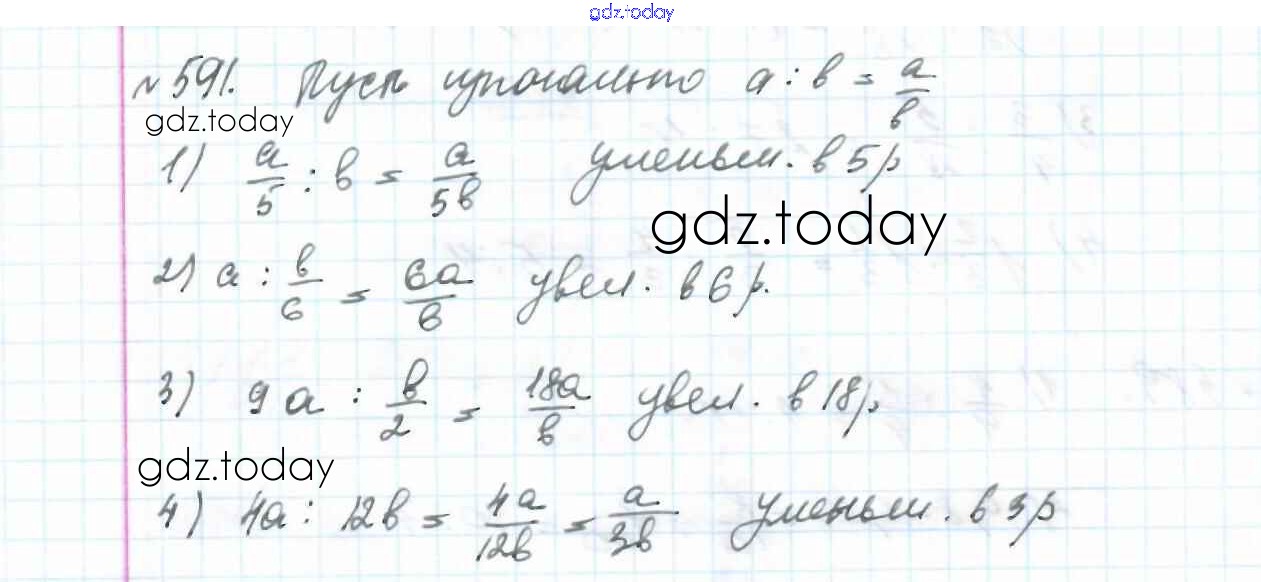 gdz.today
№591. Пусть изначально a : b = a/b
gdz.today
1) a/5 : b = a/5b уменьш. в 5 р
gdz.today
2) a : b/6 = 6a/b увел. в 6 р.
3) 9a : b/2 = 18a/b увел. в 18 р.
gdz.today
4) 4a : 12b = 4a/12b = a/3b уменьш. в 3 р